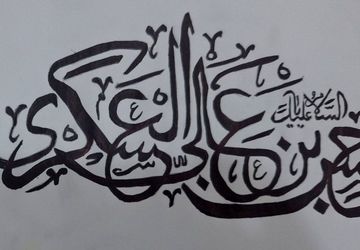 السلام علیک
حسن بن علی العسکری